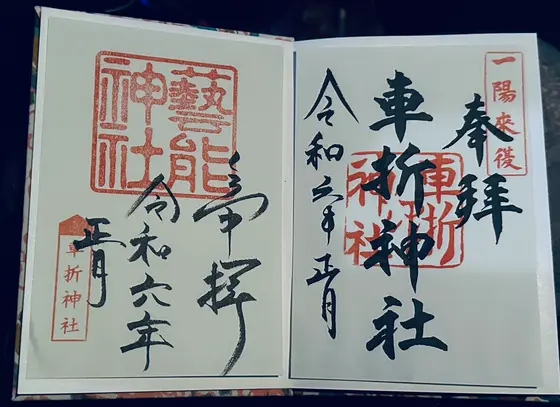 一陽來復
奉拜
車折神社
車折神社
令和六年正月
奉拝
藝能神社
令和六年
正月
車折神社